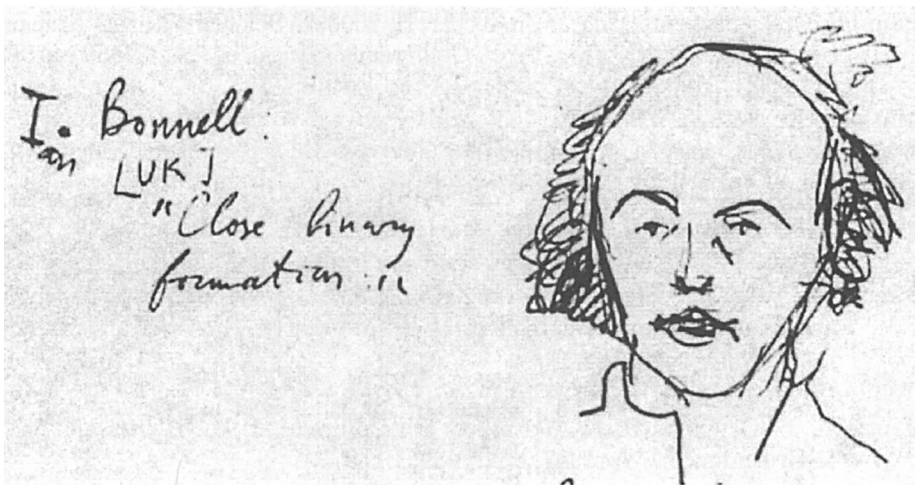 I. Bonnell.
an
[UK]
"Close binary
formation"